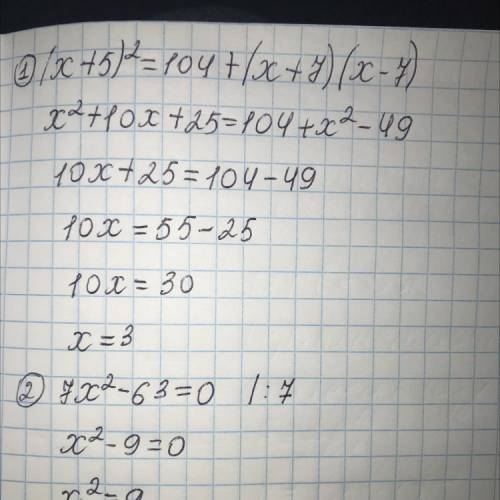 ① (x+5)²=104+(x+7)(x-7)
x²+10x+25=104+x²-49
10x+25=104-49
10x=55-25
10x=30
x=3
② 7x²-63=0 /:7
x²-9=0
x²=9